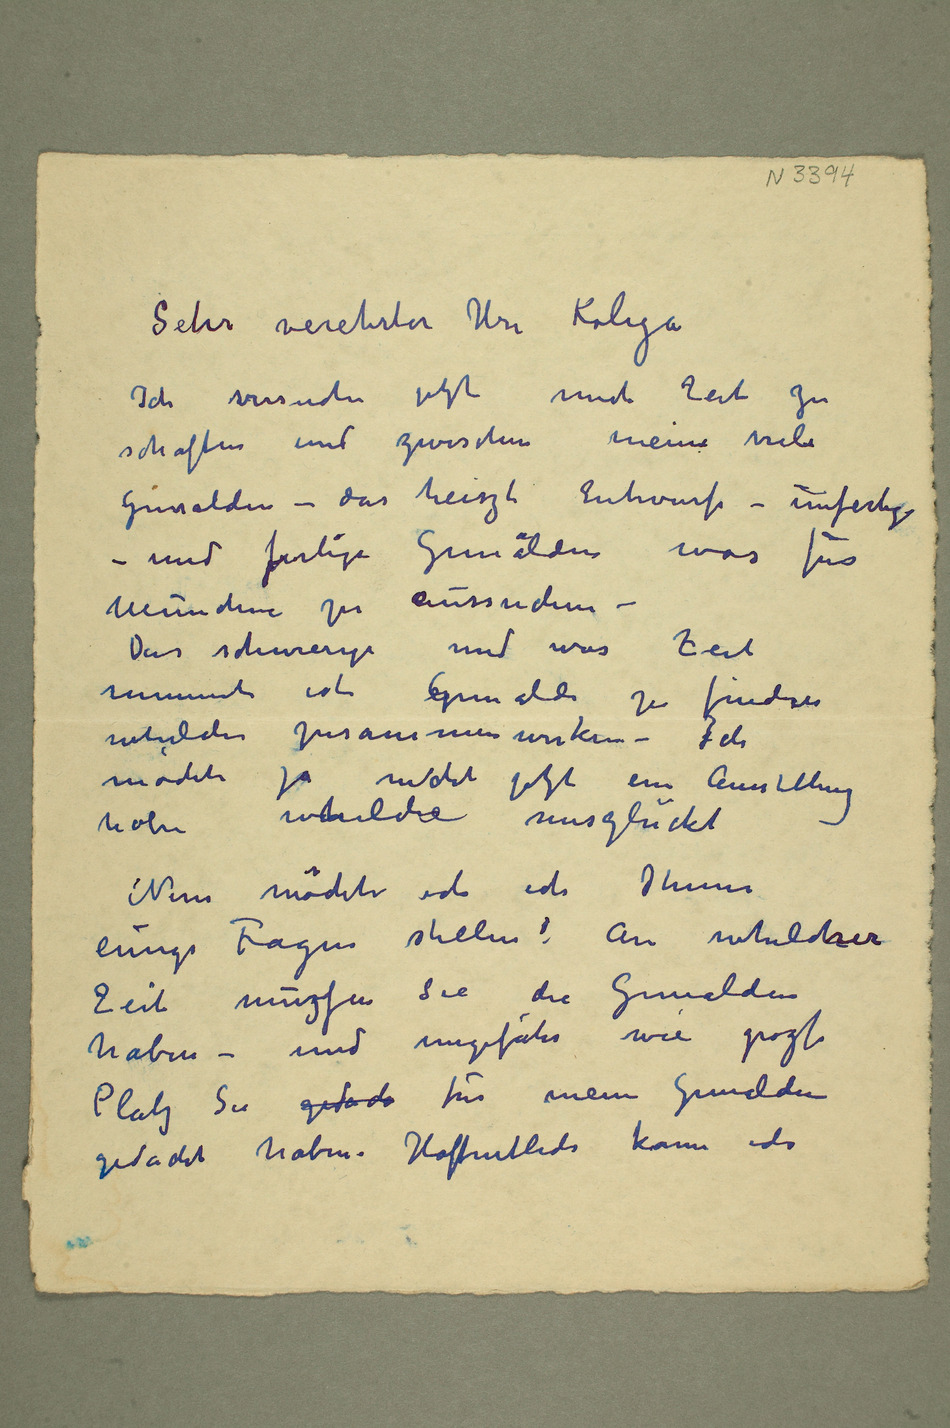 N 3394
Sehr verehrter Herr Kolega
Ich versuche jetzt mich Zeit zu
schaffen und zwischen meine viele
Gemälden – das heiszt Entwurfe – unfertige
– und fertige Gemälden was für
München zu aussuchen –
Das schwierige und was Zeit
nimmt ist Gemälde zu finden
welche zusammen wirken – Ich
möchte ja nicht jetzt ein Ausstellung
haben welche misglückt
Nun möchte ich ich Ihnen
einige Fragen stellen? An welcher
Zeit müszen Sie die Gemälden
haben – und ungefähr wie grosze
Platz Sie gedach für meine Gemälden
gedacht haben. Hoffentlich kann ich